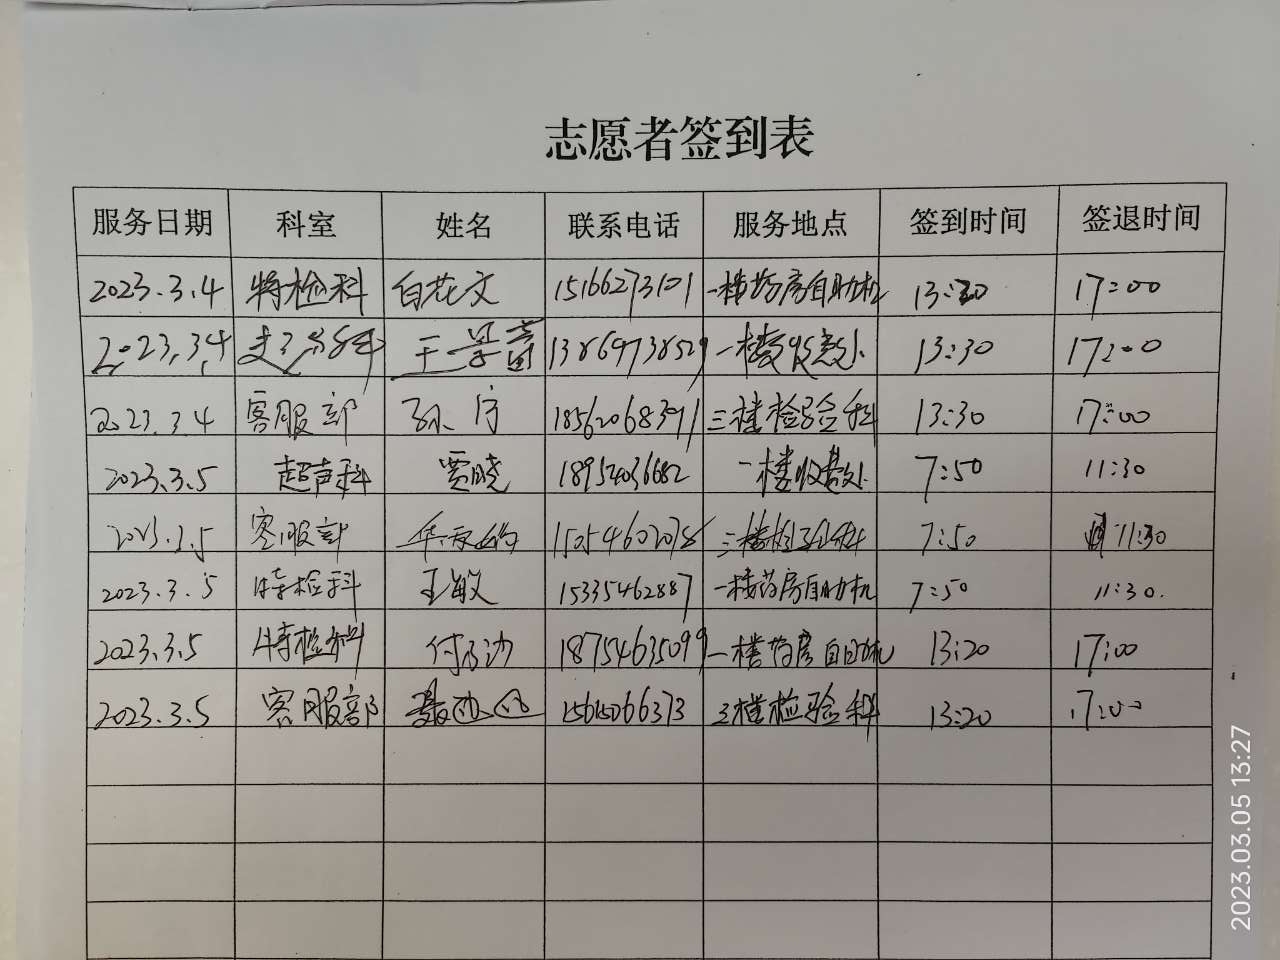 志愿者签到表
服务日期 科室 姓名 联系电话 服务地点 签到时间 签退时间
2023.3.4 特检科 白花文 15166273101 一楼药房自助机 13:30 17:00
2023.3.4 王 13869738529 一楼收费处 13:30 17:00
2023.3.4 客服部 孙 18562068391 三楼检验科 13:30 17:00
2023.3.5 超声科 贾晓 18954036682 一楼收费处 7:50 11:30
2023.3.5 客服部 三楼检验科 7:50 11:30
2023.3.5 特检科 王敏 15335462887 一楼药房自助机 7:50 11:30.
2023.3.5 特检科 付 18754635099 一楼药房自助机 13:20 17:00
2023.3.5 客服部 15615066373 三楼检验科 13:20 17:00
2023.03.05 13:27